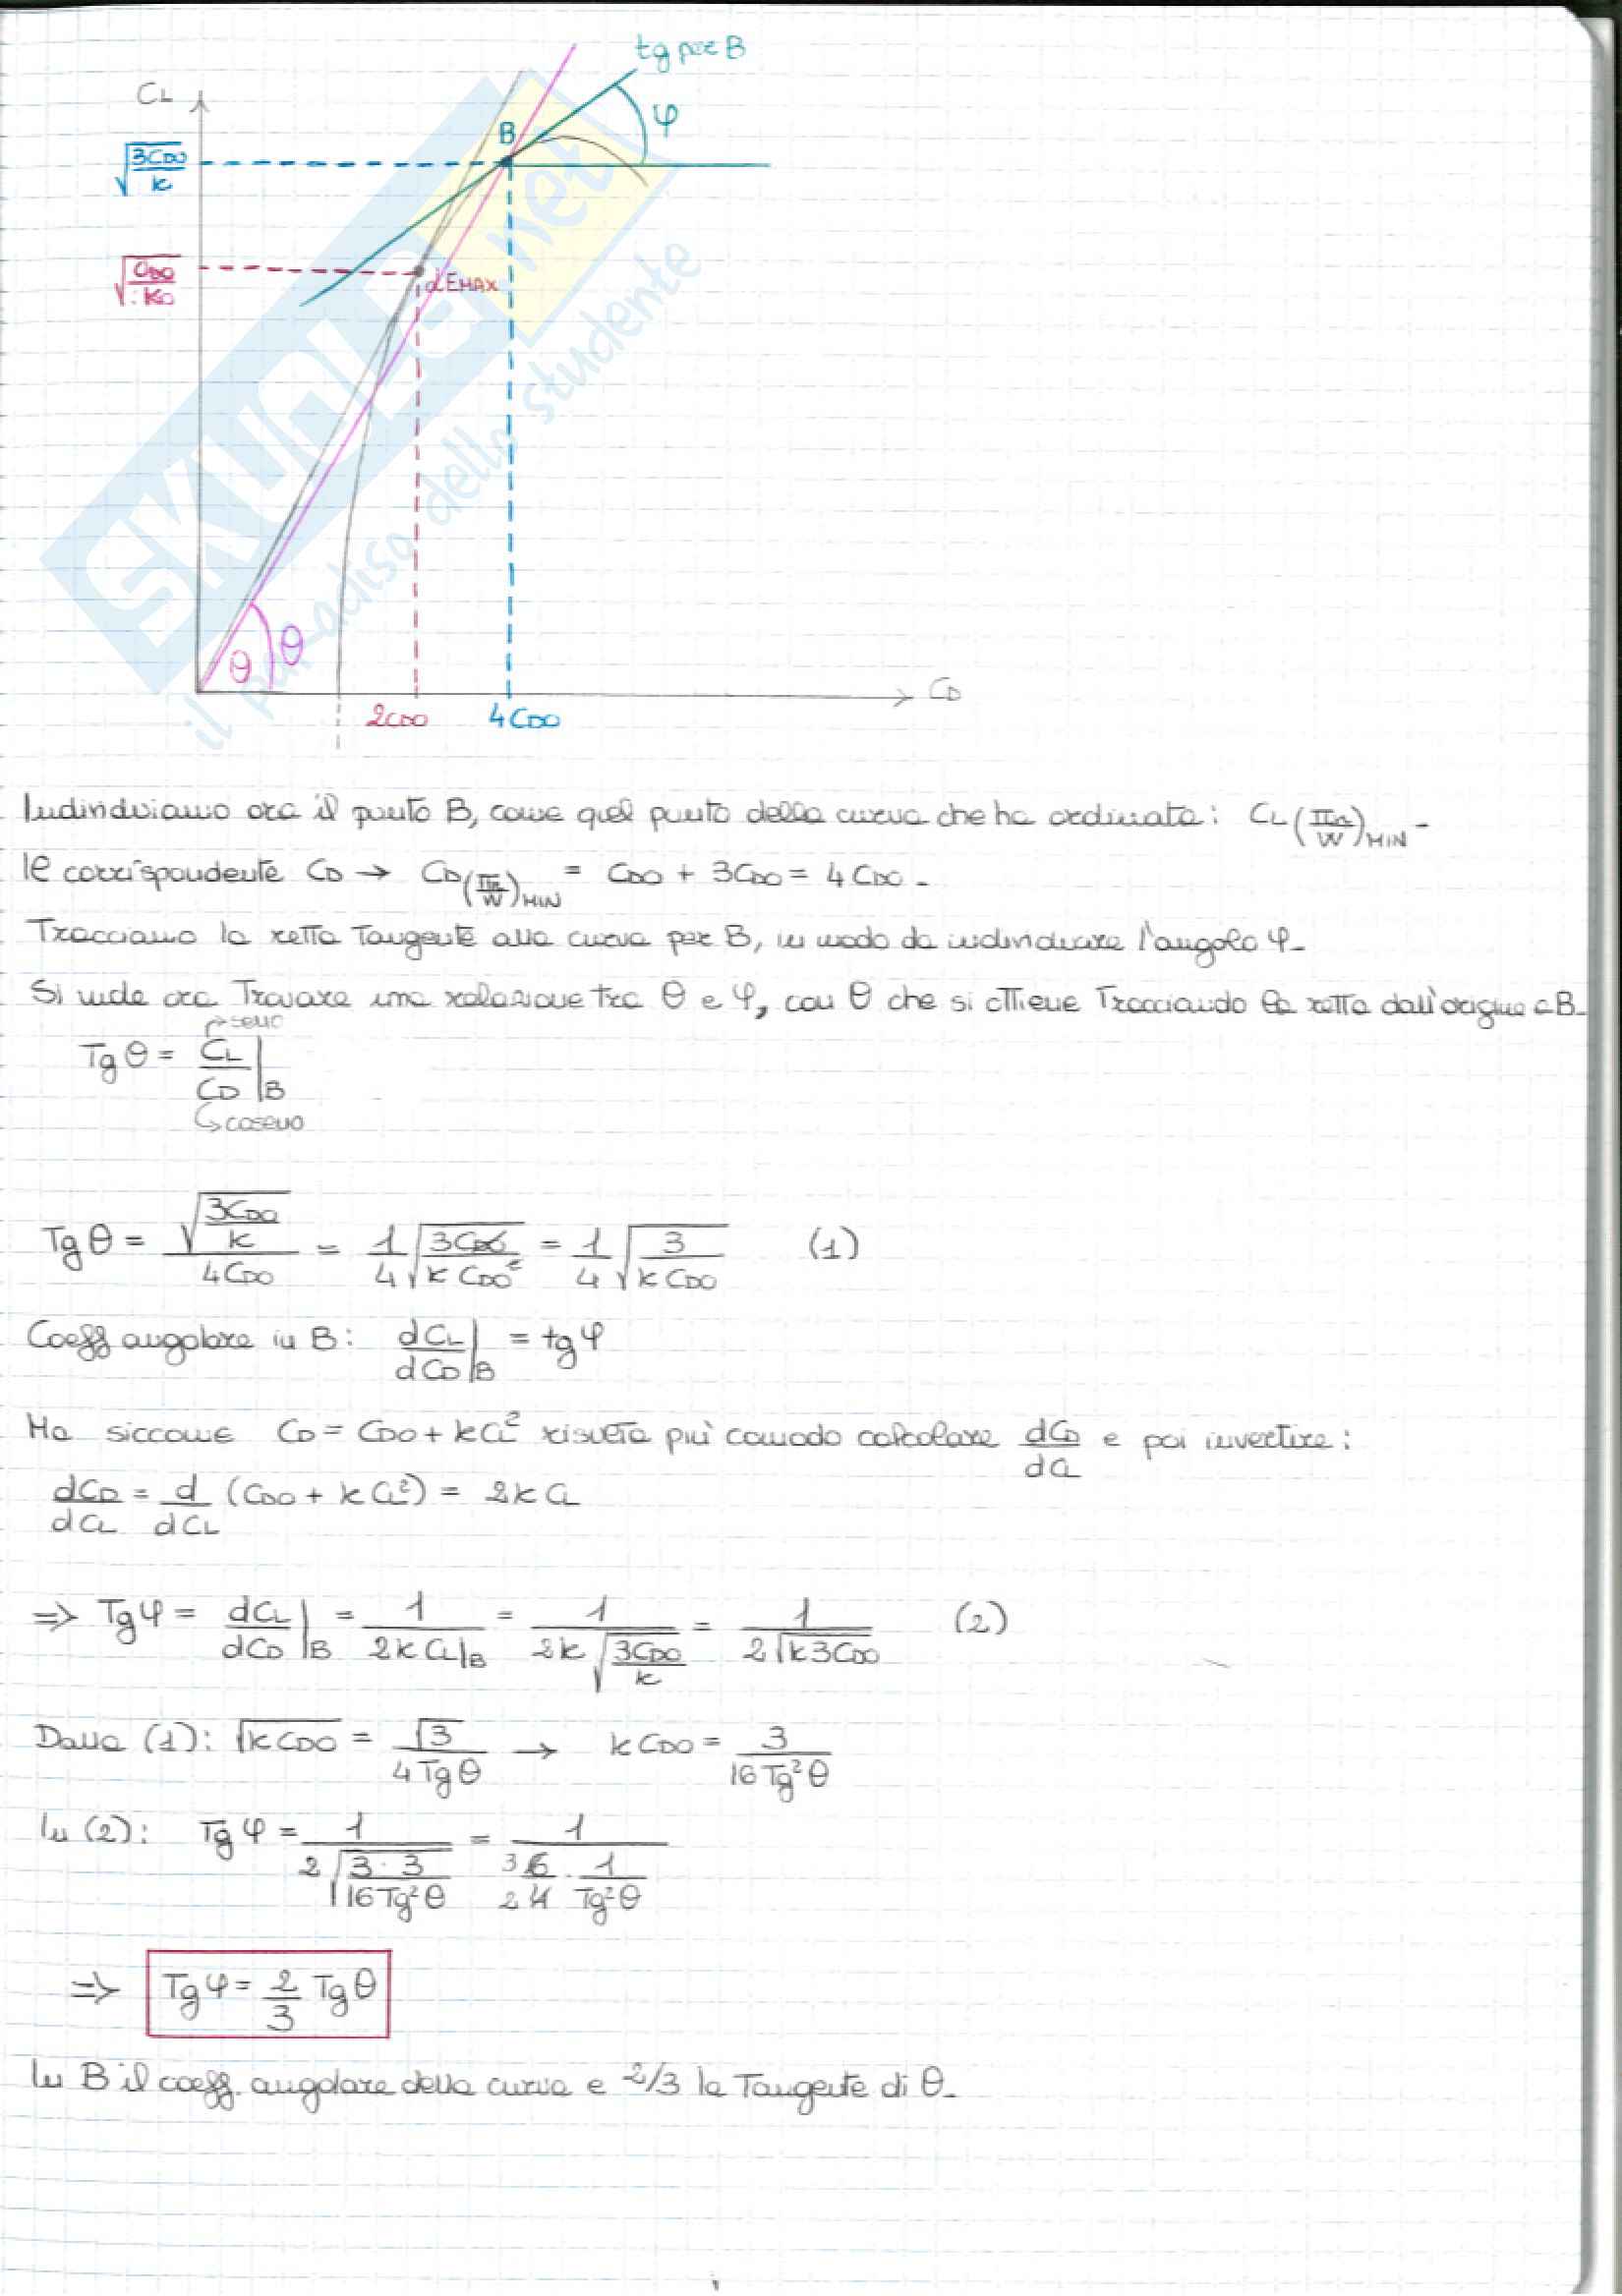 tg per B
CL
φ
B
√(3CD0/k)
√(CD0/k0)
αEMAX
θ θ
CD
2CD0 4CD0
SKUOLA.net
il paradiso dello studente
Individuiamo ora il punto B, come quel punto della curva che ha ordinata: CL(Πn/W)MIN-
Il corrispondente CD → CD(Πn/W)MIN = CD0 + 3CD0 = 4CD0-
Tracciamo la retta Tangente alla curva per B, in modo da individuare l'angolo φ-
Si vuole ora Trovare una relazione tra θ e φ, con θ che si ottiene Tracciando la retta dall'origine a B-
Tgθ = CL/CD|B
↱ seno
↳ coseno
Tgθ = √(3CD0/k) / 4CD0 = 1/4 √(3CD0/kCD0²) = 1/4 √(3/kCD0) (1)
Coeff angolare in B: dCL/dCD|B = tgφ
Ma siccome CD = CD0 + kCL² risulta più comodo calcolare dCD/dCL e poi invertire:
dCD/dCL = d/dCL (CD0 + kCL²) = 2kCL
⇒ Tgφ = dCL/dCD|B = 1/(2kCL|B) = 1/(2k√(3CD0/k)) = 1/(2√(k3CD0)) (2)
Dalla (1): √(kCD0) = √3/(4Tgθ) → kCD0 = 3/(16Tg²θ)
In (2): Tgφ = 1/(2√(3·3/(16Tg²θ))) = 1/(3 6/2 4 · 1/Tg²θ)
⇒ Tgφ = 2/3 Tgθ
In B il coeff. angolare della curva e 2/3 la Tangente di θ-